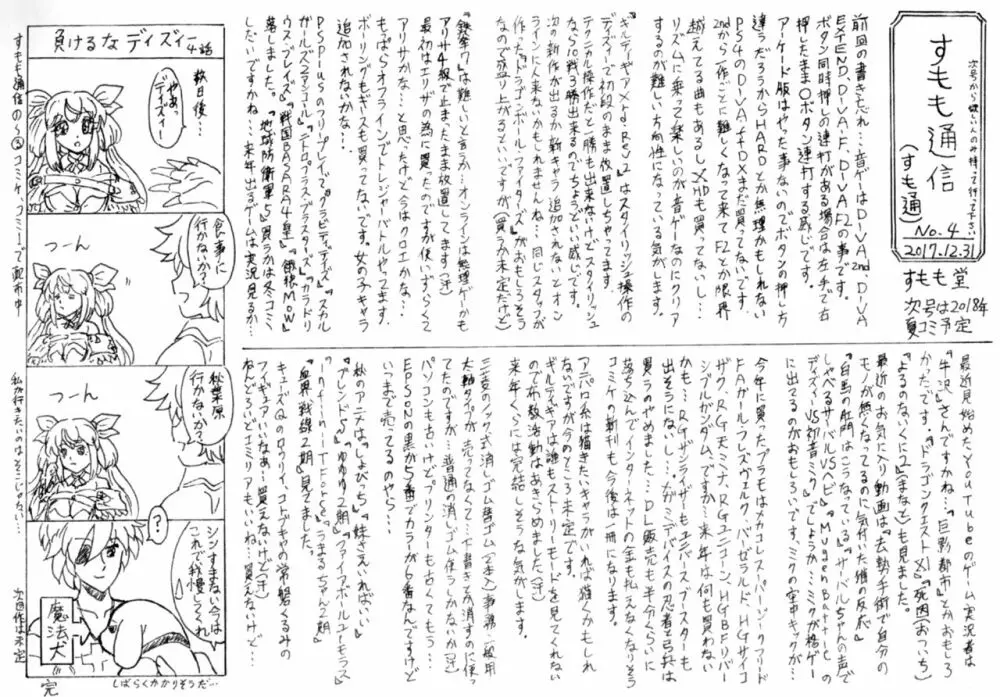 次号から欲しい人のみ持って行って下さい
すもも通信
(すも通)
No.4
2017.12.31
すもも堂
次号は2018年
夏コミ予定
前回の書きもれ…音ゲーはDIVA2nd、DIVA
EXTEND、DIVA-F、DIVAF2の事です。
ボタン同時押しの連打がある場合は左手で右
押したまま○ボタン連打する感じです。
アーケード版はやった事ないのでボタンの押し方
違うだろうからHARDとか無理かもしれない
PS4のDIVAfDXまだ買ってないです。
2ndから1作ごとに難しくなって来てF2とか限界
越えてる曲もあるしXHDも買ってないし…
リズムに乗って楽しいのが音ゲーなのにクリア
するのが難しい方向性になっている気がします。
『ギルティギアXrd Rev2』はスタイリッシュ操作の
ディズィーで初段のまま放置しちゃってます。
テクニカル操作だと一勝も出来ないけどスタイリッシュ
なら50戦3勝出来るのでちょうどいい感じです。
次の新作が出るか新キャラ追加されないとオン
ラインに人来ないかもしれませんね…同じスタッフが
作った『ドラゴンボールファイターズ』がおもしろそう
なので盛り上がるといいですが(買うか未定だけど)
『鉄拳7』は難しいと言うか…オンラインは無理ゲーかも
アリサ4級で止まったまま放置してます(汗)
最初はエリザの為に買ったのですが使いずらくて
アリサかな…と思ったけど今はクロエかな…
もっぱらオフラインでトレジャーバトルやってます。
ボーリングもギースも買ってないです。女の子キャラ
追加されないかな…
PSplusのフリープレイで『グラビティデイズ』『スカル
ガールズ2ndアンコール』『ニトロプラスブラスターズ』『カラドリ
ウスブレイズ』『戦国BASARA4皇』『餓狼MOW』
落しました。『地球防衛軍5』買うかは冬コミ
しだいですかね…来年出るゲームは実況見るか…
最近見始めたYouTubeのゲーム実況者は
『牛沢』さんですかね…『巨影都市』とかおもしろ
かったです。『ドラゴンクエストXI』『死印(おついち)』
『よるのないくに2(まなと)』も見ました。
最近のお気に入り動画は『去勢手術で自分の
モノが無くなってるのに気付いた猫の反応』
『自画の肛門はこうなっている』『サーバルちゃんの声で
しゃべるサーバルVSヘビ』『Mugen Battle
ディズィーVS初音ミク』でしょうか…ミクが格ゲー
に出てるのがおもしろいです。ミクの空中キックが…
今年に買ったプラモはメカコレスーパーシークフリード
FAガールフレズヴェルク、バーゼラルド、HGサイコ
ザク、RGキュベレイ、RGユニコーン、HGBFリバー
シブルガンダム、ですか…来年は何も買わない
かも…RGサンライザーもユニバースブースターも
出そうにないし…大がミデバイスの忍者と弓兵は
買うのやめました…DL販売も半分くらいに
落ち込んでインターネットの金も払えなくなりそう
コミケの新刊も今後は一冊になります。
アニパロ系は描きたいキャラがいれば描くかもしれ
ないですが今のところ未定です。
ギルティギアは誰もストーリーモードを見てくれない
ので布教活動はあきらめました(汗)
来年くらいには完結しそうな気がします。
三菱のノック式消しゴム替ゴム(2本入)事務・一般用
太軸タイプが売ってなくて…下書きが消すのに使っ
てたのですが…普通の消しゴム使うしかないか(汗)
パソコンも古いけどプリンターも古くてもう…
EPSONの黒から5番でカラが6番なんですけど
いつまで売ってるのやら…
秋のアニメは『しょびっち』『妹さえいればいい』
『ブレンド・S』『ゆゆゆ2期』『ファイアボールユーモラス』
『Infini-T Force』『うまるちゃん2期』
『血界戦線2期』見ました。
キューズQのロウリィ、コトブキヤの常磐くるみの
フィギュアいいなぁ…買えないけど(汗)
ねんどろいどエミリアもいいけど、買えないけど…
負けるなディズィー
4話
数日後…
やぁっ
ディズィー
食事に
行かないか?
つーん
秋葉原
行かないか?
つーん
?
シンすまない、今は
これで我慢してくれ
魔法犬
しばらくかかりそうだ…
完
すもも通信の①~③コミケ、コミ1で配布中
私が行きたいのはそこじゃない…
次回作は未定